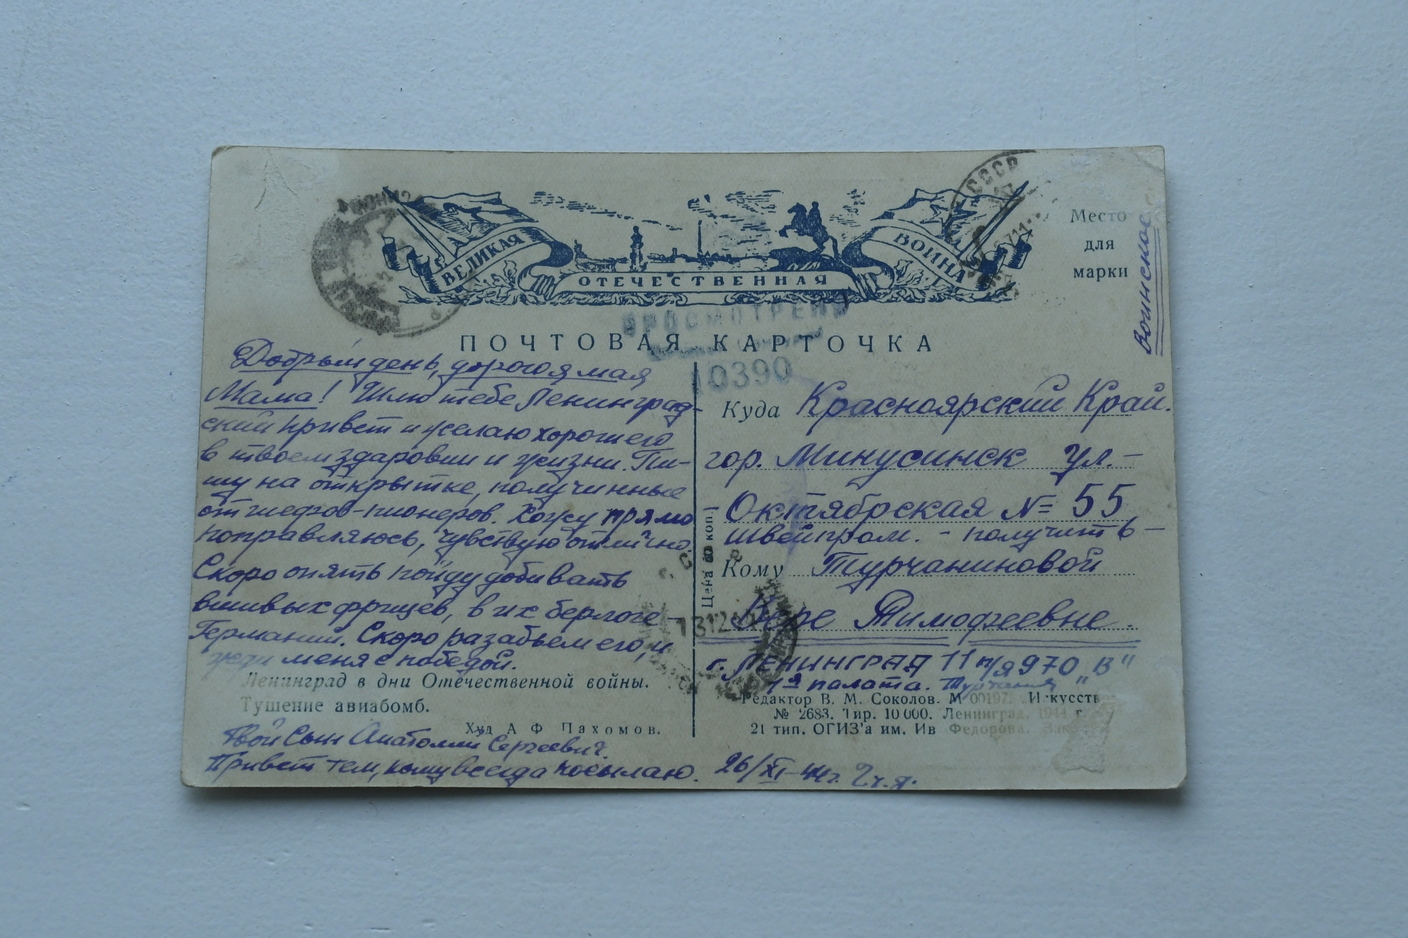 ВЕЛИКАЯ ОТЕЧЕСТВЕННАЯ ВОЙНА
СССР
Место
для
марки
Воинское
ПРОСМОТРЕНО
10390
ПОЧТОВАЯ КАРТОЧКА
Добрый день, дорогоя моя
Мама! Шлю тебе Ленинград-
ский привет и желаю хорошего
в твоем здаровии и жизни. Пи-
шу на открытке, полученные
от шефов-пионеров. Хожу прямо
поправляюсь, чувствую отлично.
Скоро опять пойду добивать
вшивых фрицев, в их берлоге
Германии. Скоро разобьем его, и
жди меня с победой.
Ленинград в дни Отечественной войны.
Тушение авиабомб.
Худ А Ф Пахомов.
Твой Сын Анатолий Сергеевич.
Привет тем, кому всегда посылаю. 26/XI-44г.
Куда Красноярский Край.
гор. Минусинск ул.-
Октябрская №= 55
швейпром. - получить -
Кому Турчаниновой
Вере Тимофеевне.
г. ЛЕНИНГРАД 11 п/я 970 „В"
палата.
Цена коп.
Редактор В. М. Соколов. Искусств
№ 2683. Тир. 10 000. Ленинград. 1944 г.
21 тип. ОГИЗ'а им. Ив Федорова.